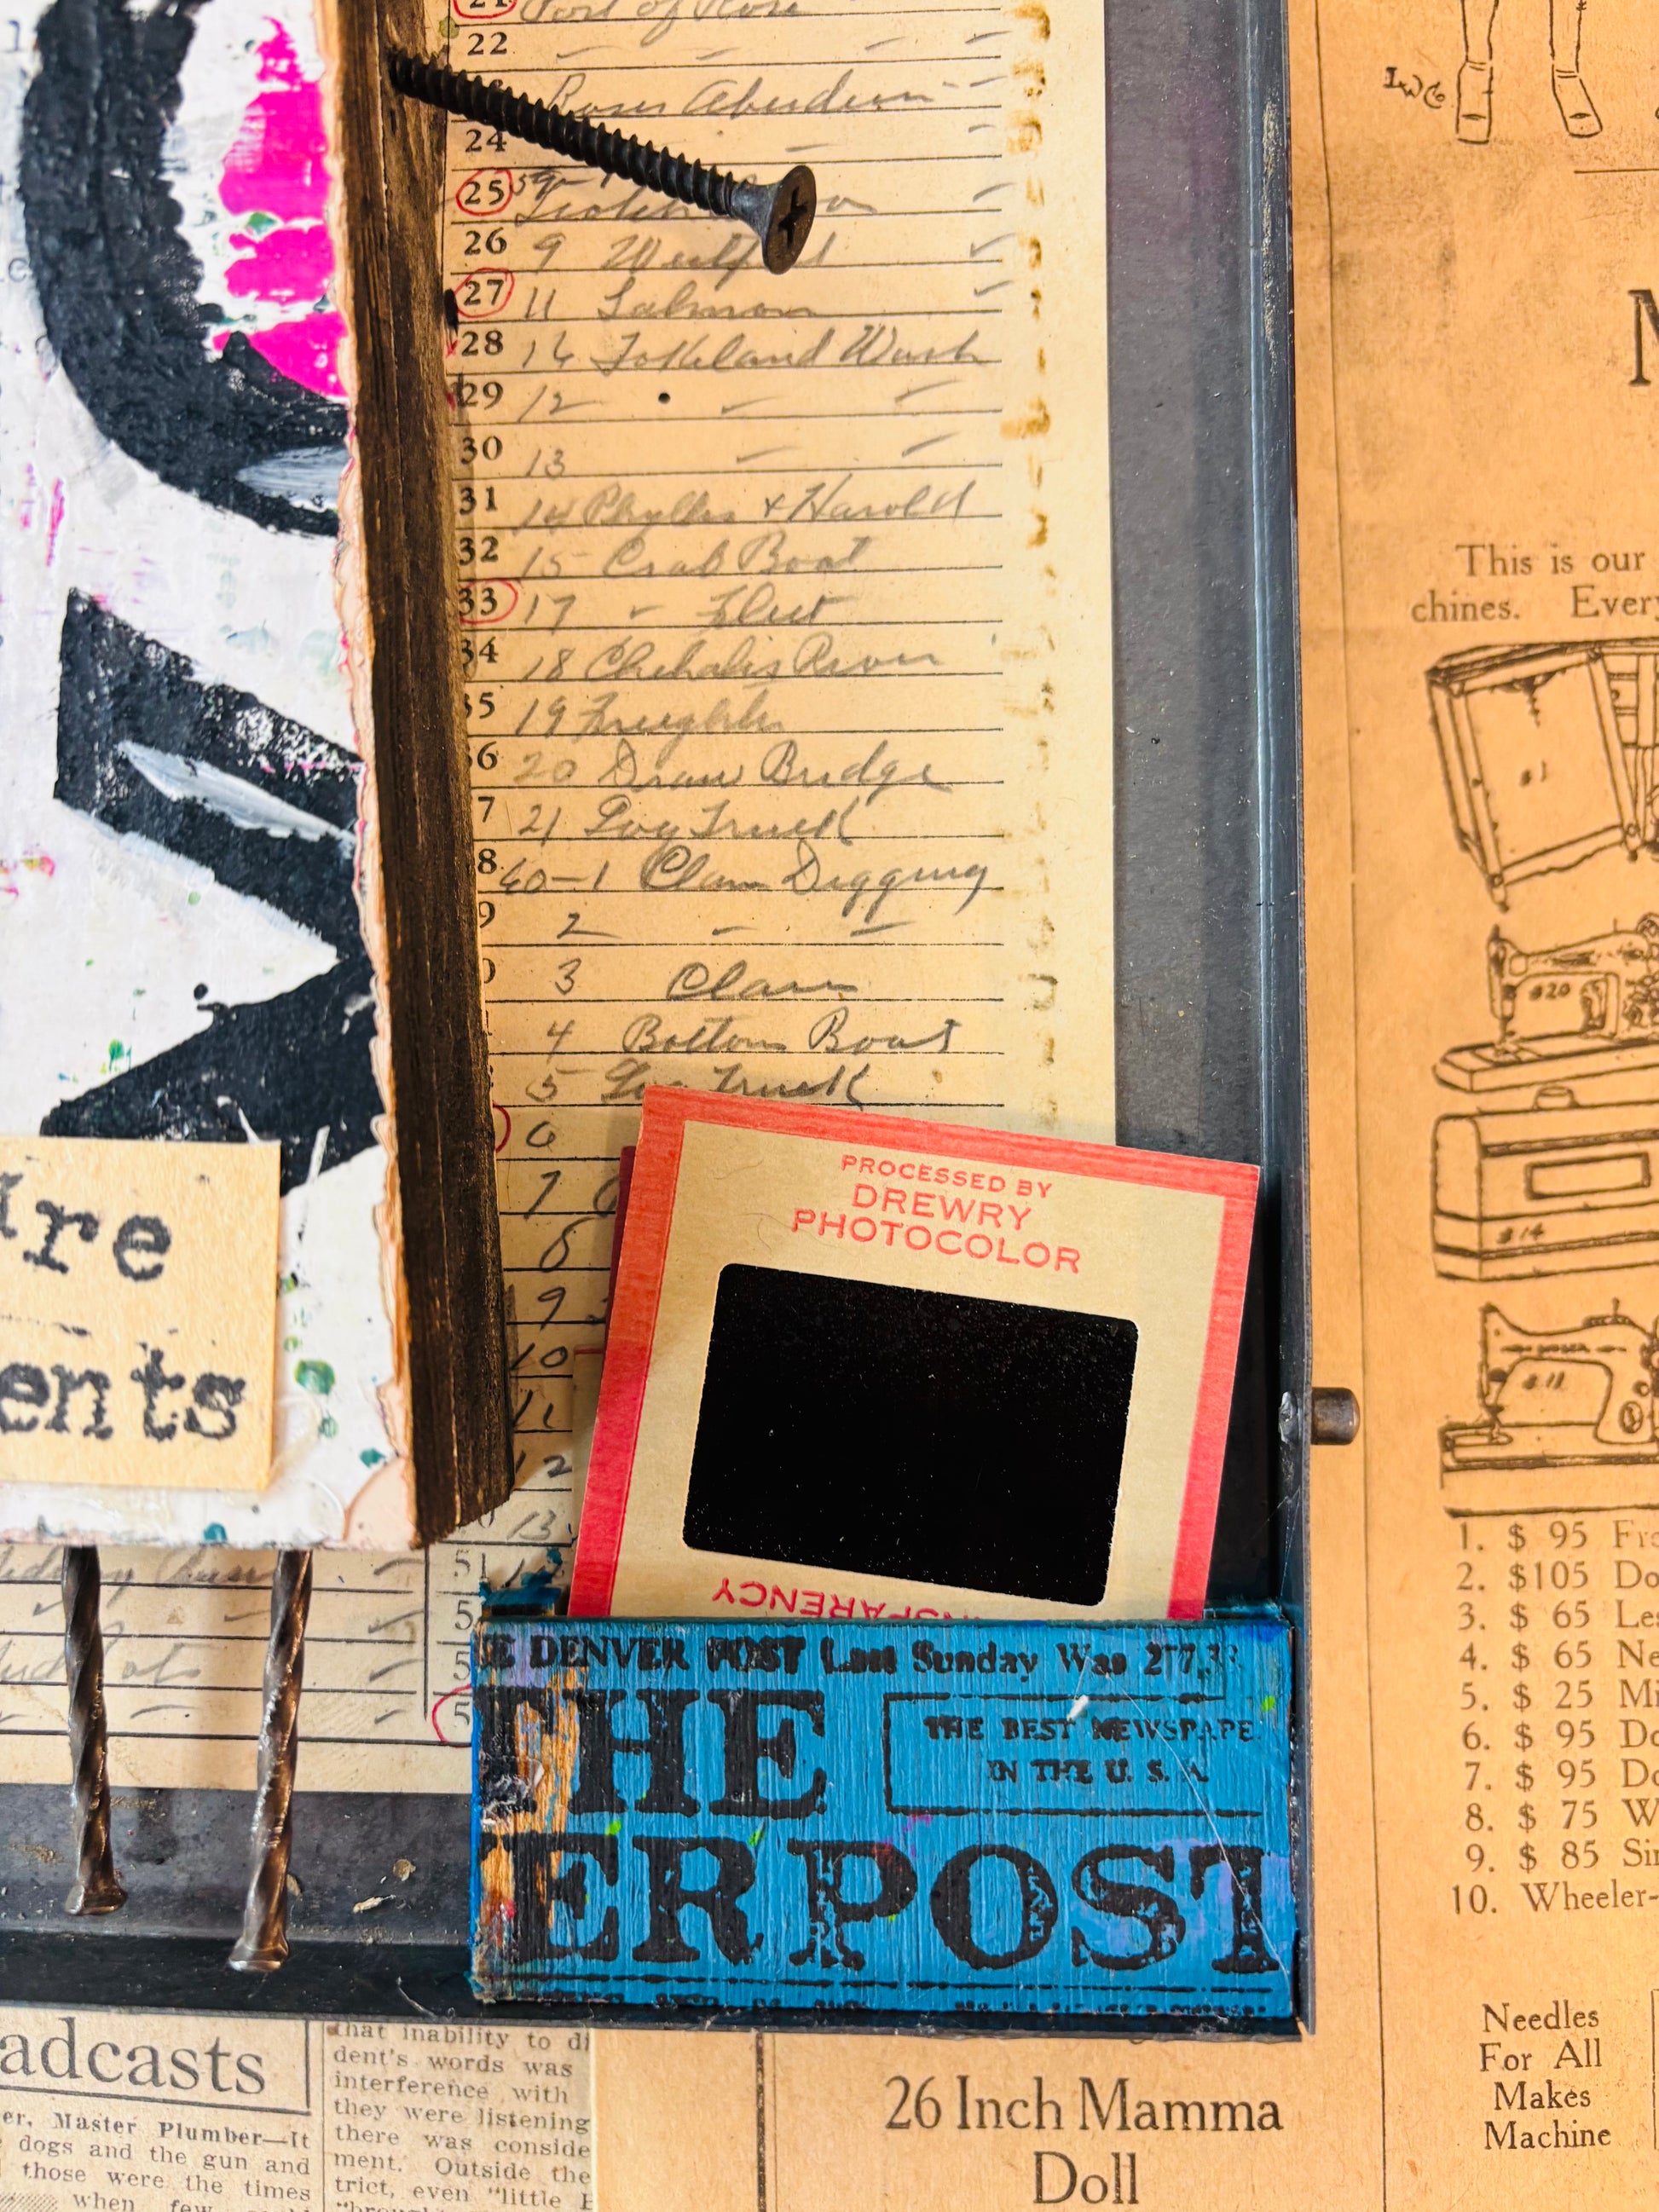 21 Port of
22
Roses Aberdeen
24
25
26 9
27 11 Salmon
28 16 Tokeland Wash
29 12
30 13
31 14 Phyllis + Harold
32 15 Crab Boat
33 17 - Fleet
34 18 Chehalis River
35 19 Freighter
36 20 Draw Bridge
7 21 Log Truck
8 60-1 Clam Digging
9 2
3 Clam
4 Bottom Boat
5 Log Truck
6
7
8
9
10
11
12
13
51
are
ents
PROCESSED BY
DREWRY
PHOTOCOLOR
E DENVER POST Last Sunday Was 277,33
THE
THE BEST NEWSPAPE
IN THE U. S. A.
ER POST
LWG
M
This is our
chines. Every
#1
#20
#14
#11
1. $ 95 Fr
2. $105 Do
3. $ 65 Les
4. $ 65 Ne
5. $ 25 Mi
6. $ 95 Do
7. $ 95 Do
8. $ 75 W
9. $ 85 Sin
10. Wheeler-
Needles
For All
Makes
Machine
26 Inch Mamma
Doll
adcasts
er, Master Plumber—It
dogs and the gun and
those were the times
when few
that inability to di
dent's words was
interference with
they were listening
there was conside
ment. Outside the
trict, even "little